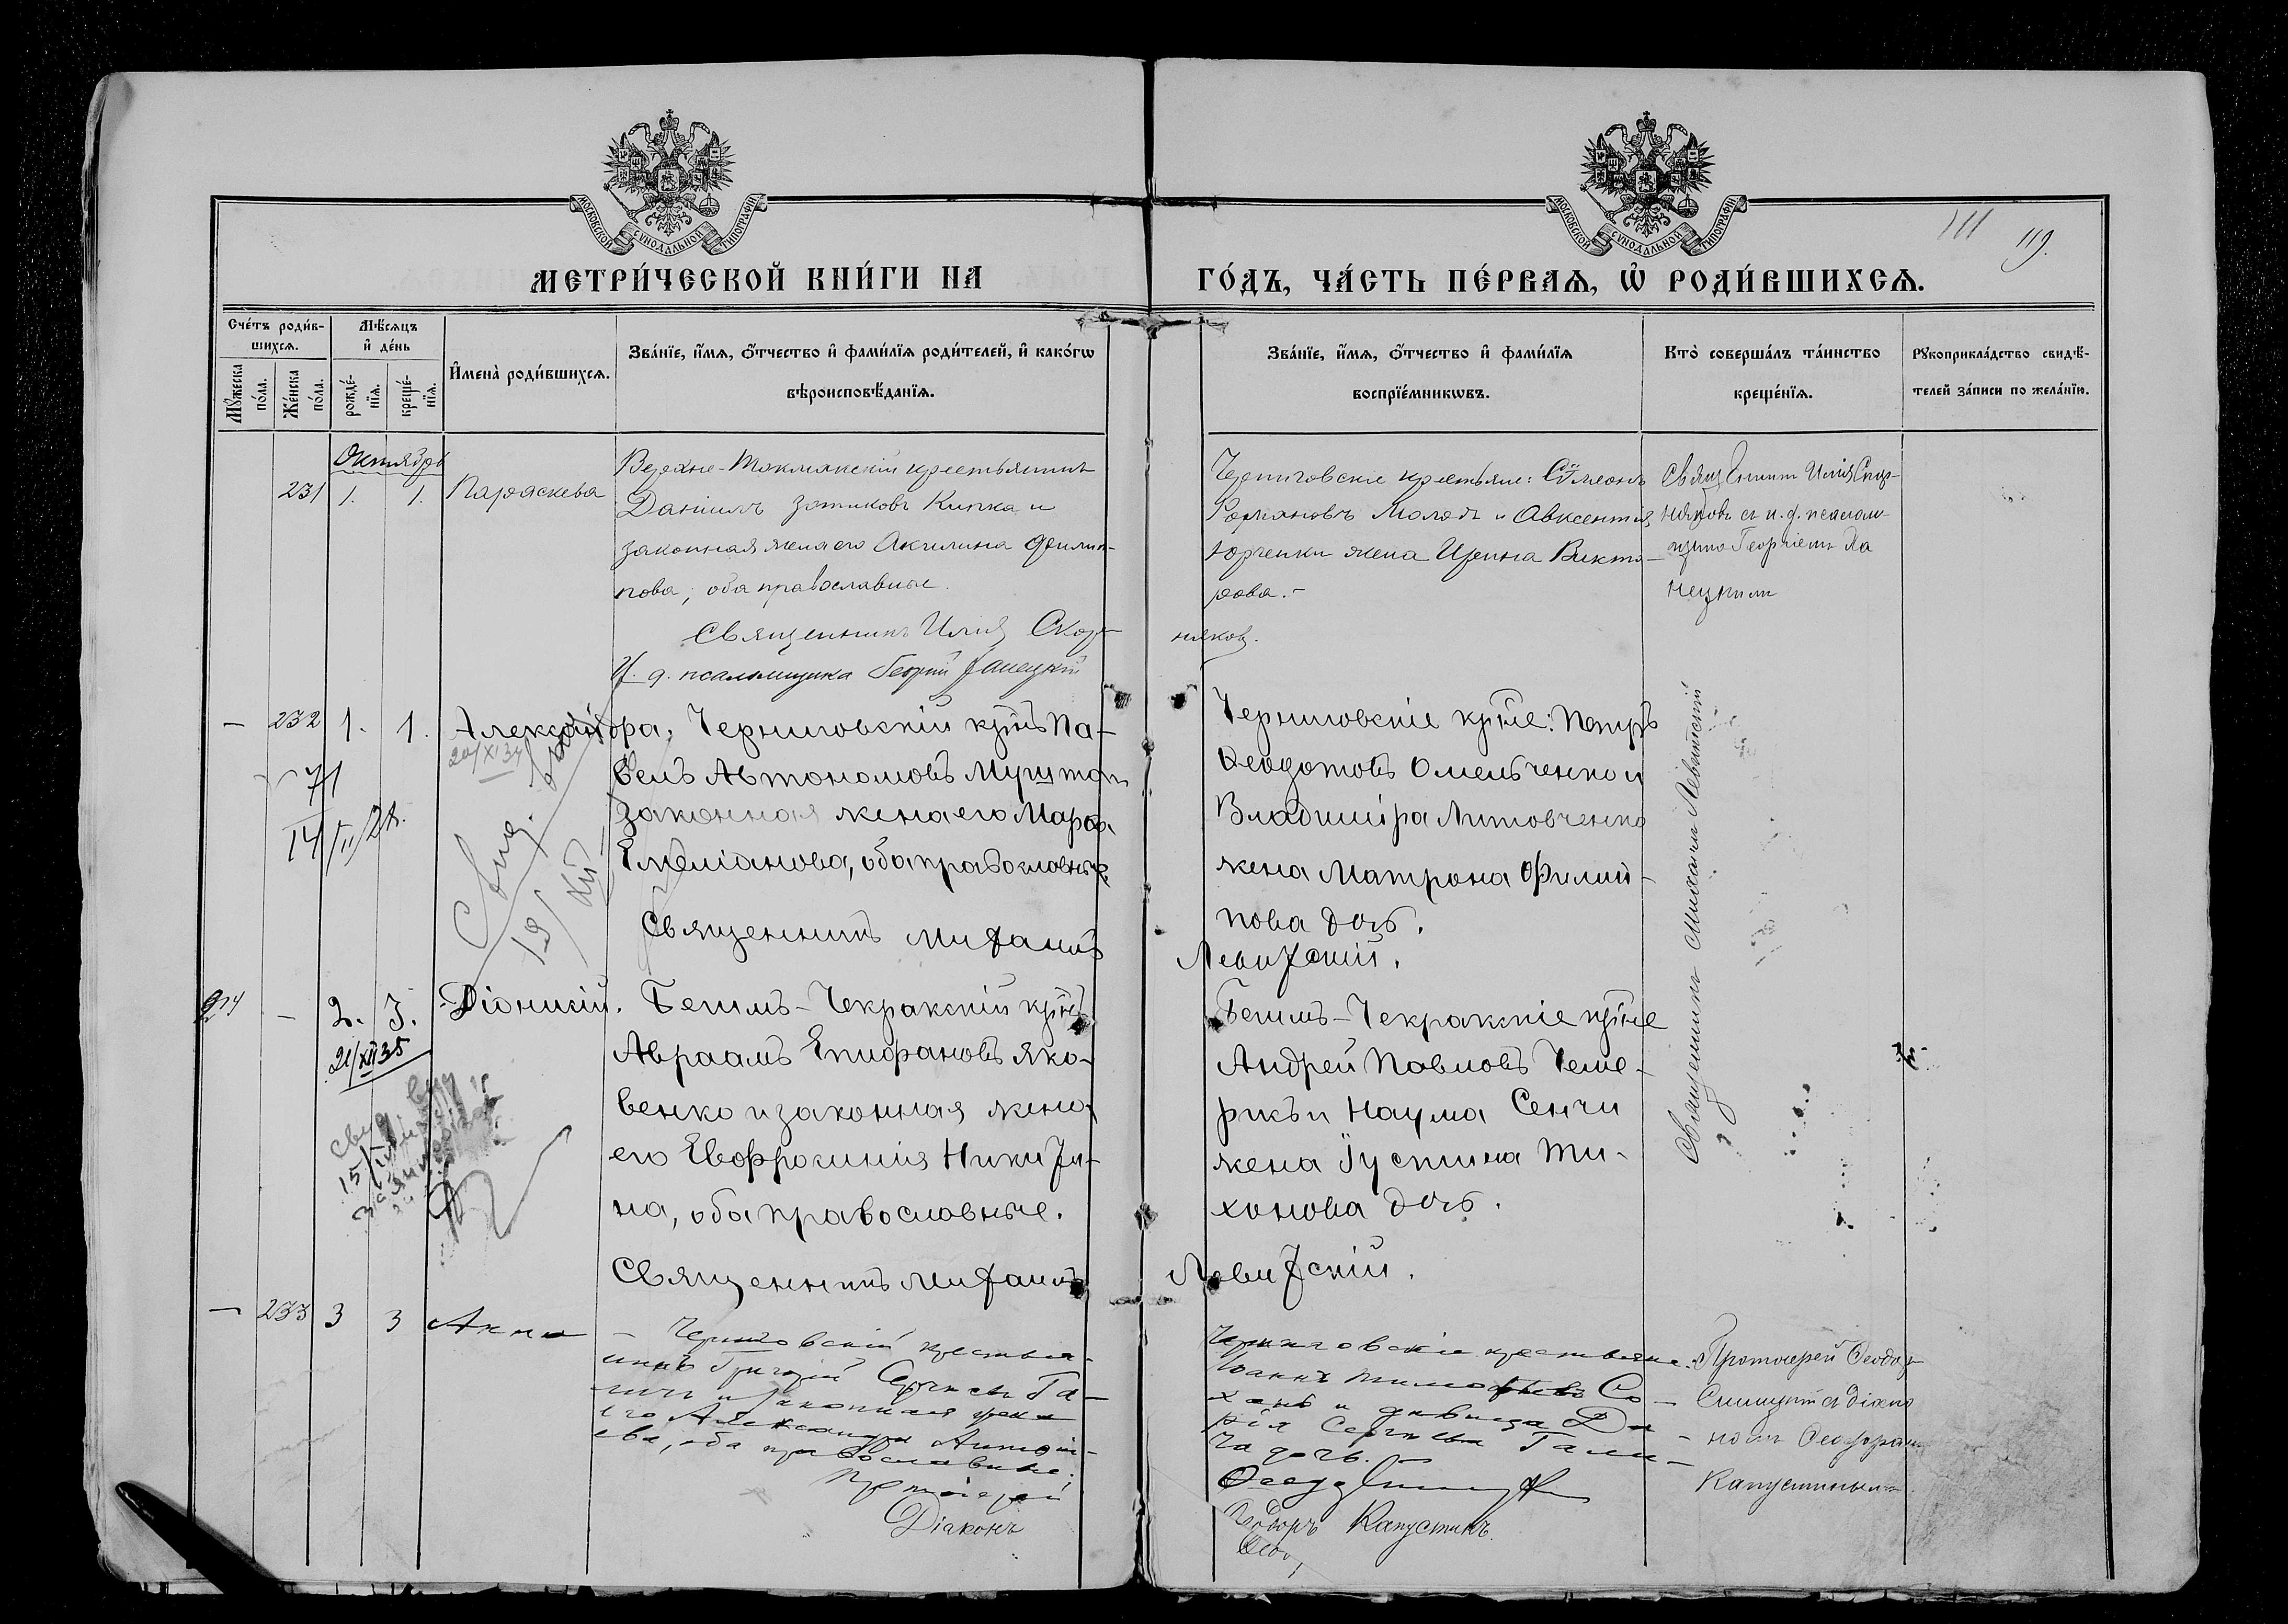 МОСКОВСКОЙ СѴНОДАЛЬНОЙ ТИПОГРАФІИ
МОСКОВСКОЙ СѴНОДАЛЬНОЙ ТИПОГРАФІИ
111 119.
МЕТРИ́ЧЕСКОЙ КНИ́ГИ НА ГО́ДЪ, ЧА́СТЬ ПЕ́РВАѦ, Ѽ РОДИ́ВШИХСѦ.
Сче́тъ роди́в-
шихсѧ.
Мꙋ́жеска по́ла.
Же́нска по́ла.
Мѣ́сѧцъ и҆ де́нь
рожде́-
нїѧ.
креще́-
нїѧ.
И҆мена̀ роди́вшихсѧ.
Зва́нїе, и҆́мѧ, ѻ҆́тчество и҆ фами́лїѧ роди́телей, и҆ како́гѡ
вѣроисповѣ́данїѧ.
Зва́нїе, и҆́мѧ, ѻ҆́тчество и҆ фами́лїѧ
воспрїе́мникѡвъ.
Кто̀ соверша́лъ та́инство
креще́нїѧ.
Рꙋкоприкла́дство свидѣ́-
телей за́писи по жела́нїю.
Октябрь
231 1. 1. Параскева
Верхне-Токмакскій крестьянинъ
Даніилъ Зотиковъ Кипка и
законная жена его Акилина Филип-
пова, оба православные.
Священникъ Илія Скор-
няковъ.
И. д. псаломщика Георгій Ганецкій
Черниговскіе крестьяне: Сѵмеонъ
Романовъ Молядъ и Авксентія
Юрченки жена Ирина Викто-
рова.-
Священникъ Илія Скор-
няковъ съ и. д. псалом-
щика Георгіемъ Га
нецкимъ
— 232 1. 1. Александра,
Черниговскій крнъ Па-
велъ Автономовъ Мушта и
законная жена его Марфа
Емеліанова, оба православные
Священникъ Михаилъ
Левитскій.
20/XI 34
71
14/II/28.
19/XII
Черниговскіе крне: Петръ
Ѳеодотовъ Омельченко и
Владиміра Литовченко
жена Матрона Филип-
пова дочь.
Священникъ Михаилъ Левитскій
— 2. 3. Діонисій.
21/XII 35
Бегимъ-Чекракскій крнъ
Авраамъ Епифановъ Яко-
венко и законная жена
его Евфросинія Никити-
на, оба православные.
Священникъ Михаилъ
Левитскій.
Бегимъ-Чекракскіе крне
Андрей Павловъ Чеме-
рисъ и Наума Сенчи
жена Іустина Ти-
хонова дочь.
— 233 3 3 Анна
— Черниговскій крестья-
нинъ Григорій Сергіевъ Га-
личъ и законная жена
его Александра Антоні-
ева, оба православные.
Протоіерей
Діаконъ
Черниговскіе крестьяне:
Іоаннъ Тимоѳеевъ Со-
ханъ и дѣвица Да-
рія Сергіева Гали-
ча дочь.
Ѳеодоръ Капустинъ
Протоіерей Ѳеодоръ
съ діако-
номъ Ѳеодоромъ
Капустинымъ